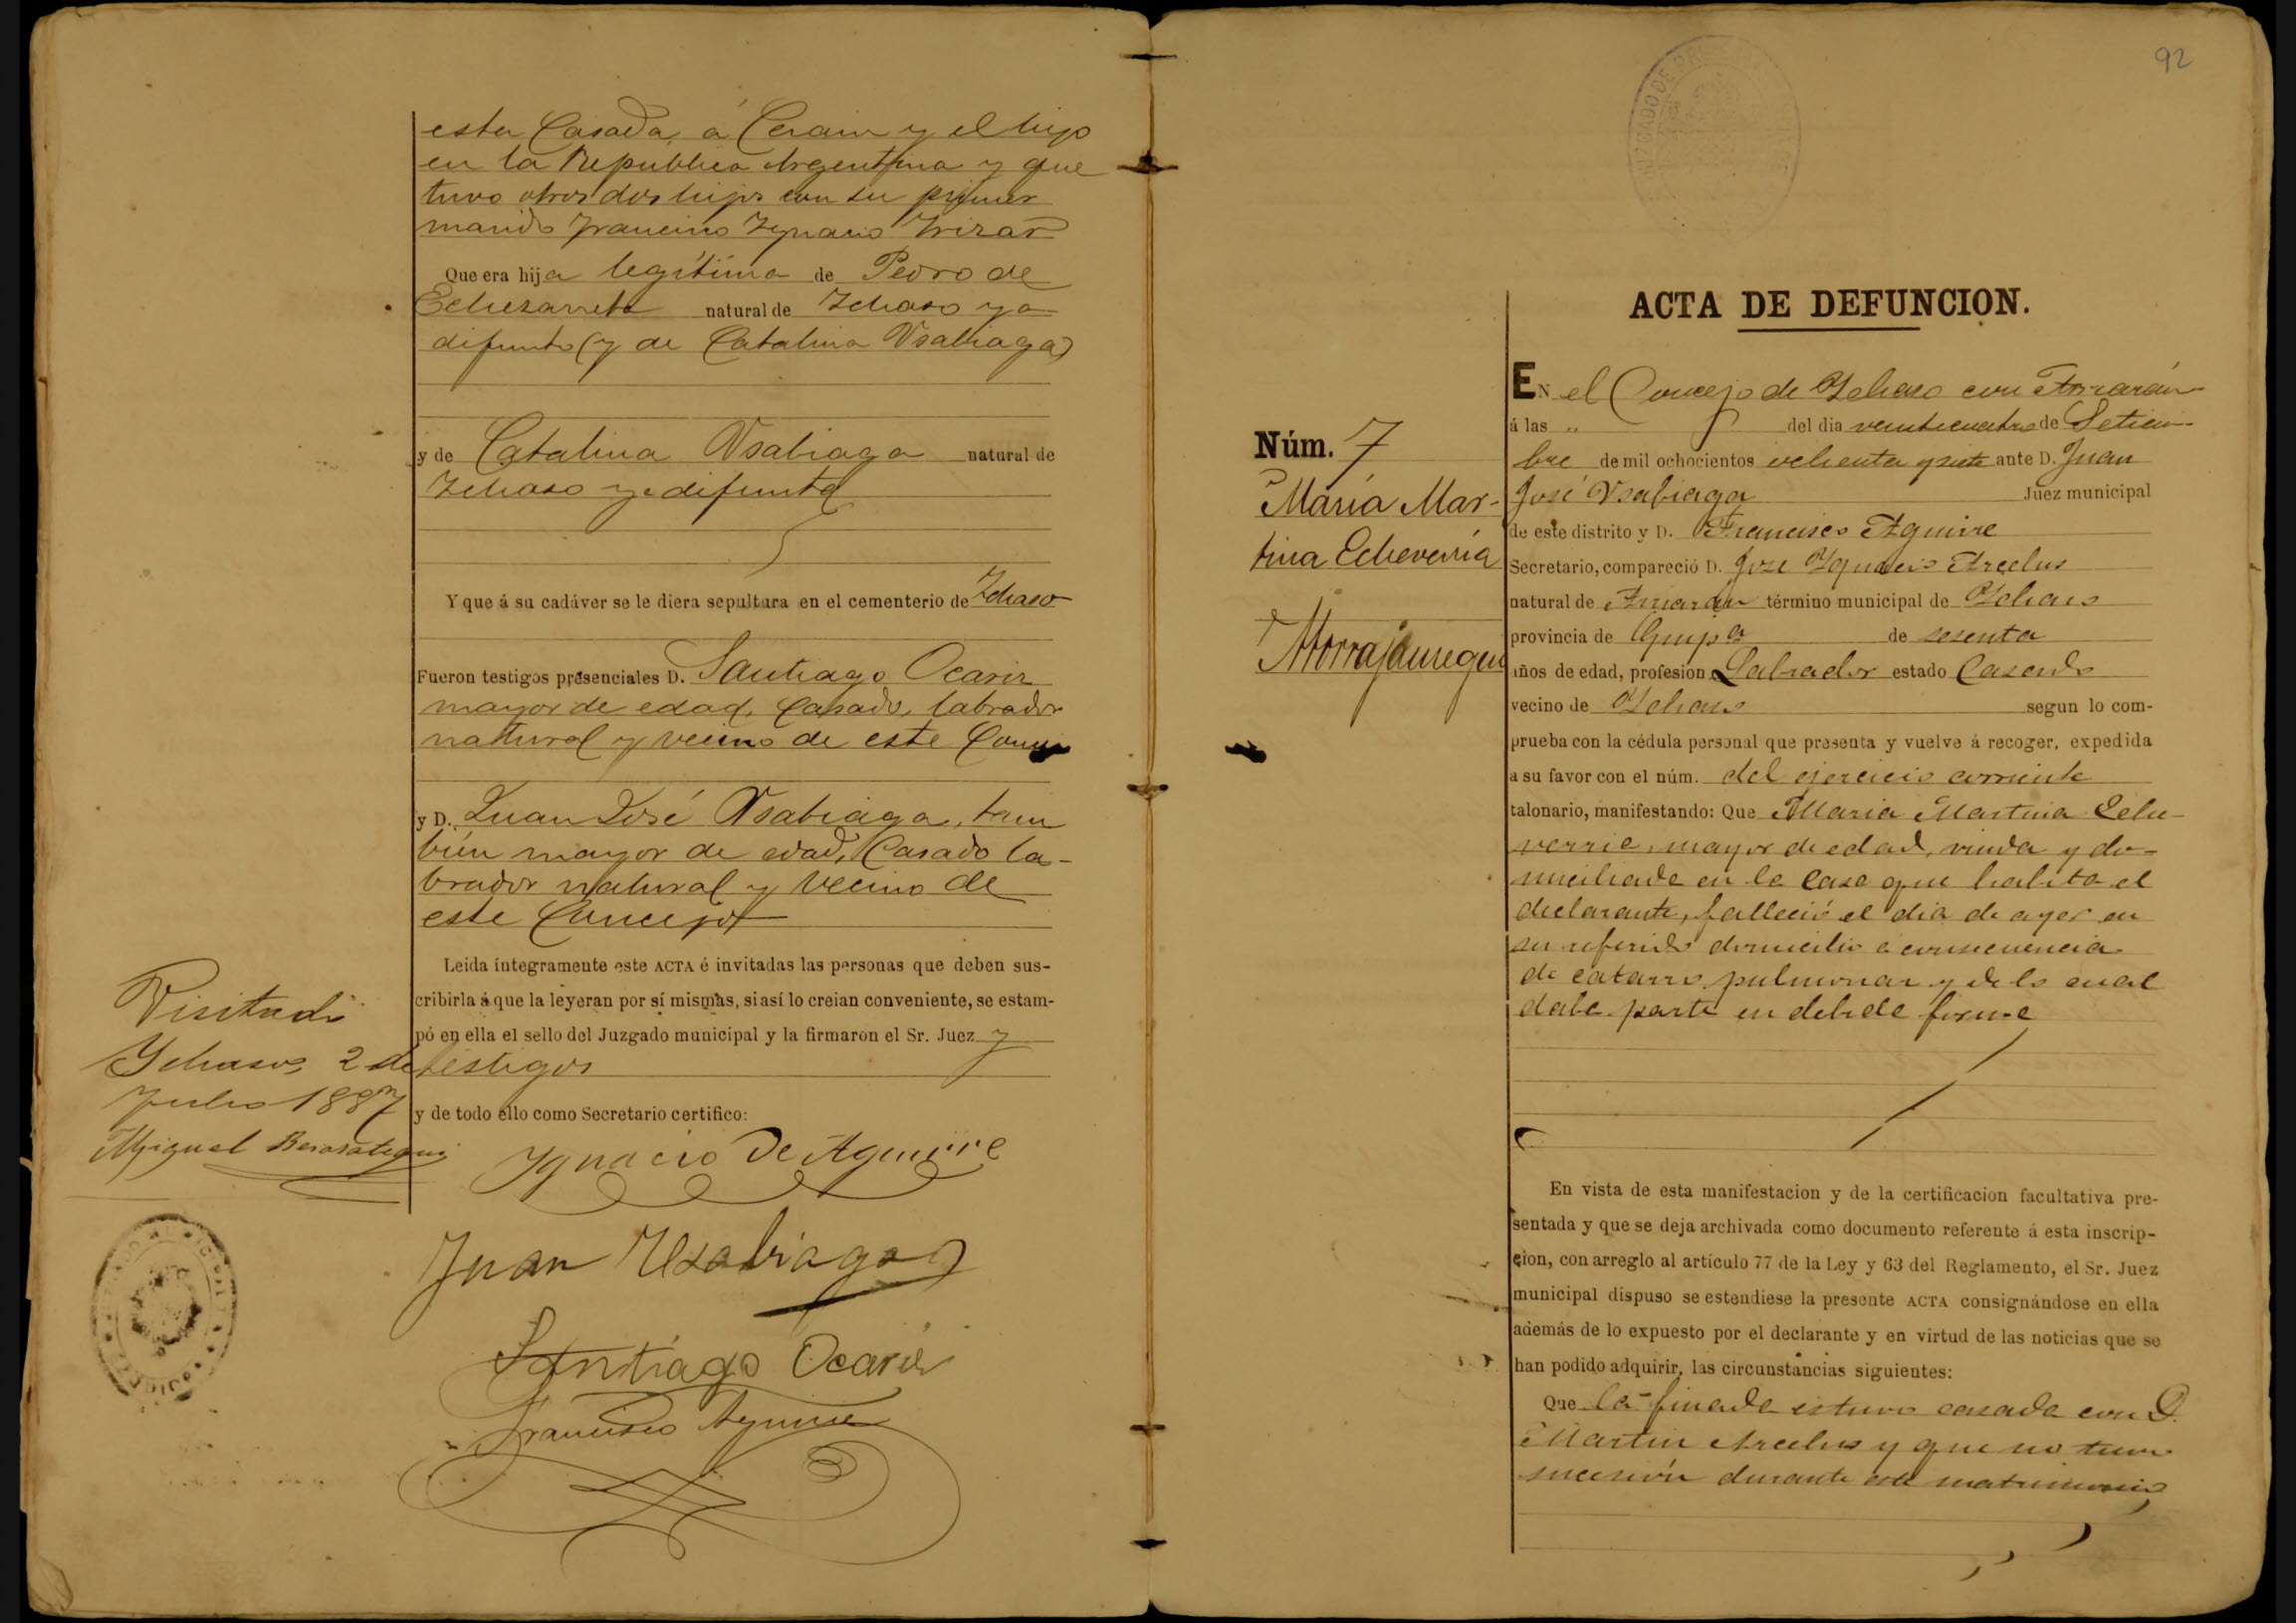 esta Casada á Cerain y el hijo
en la Republica Argentina y que
tuvo otros dos hijos con su primer
marido Francisco Ygnacio Irizar
Que era hija legítima de Pedro de
Echezarreta natural de Ichaso ya
difunto (y de Catalina Usabiaga)
y de Catalina Usabiaga natural de
Ichaso ya difunta
Y que á su cadáver se le diera sepultura en el cementerio de Ichaso
Fueron testigos presenciales D. Santiago Ocariz
mayor de edad, Casado, labrador
natural y vecino de este
y D. Juan José Usabiaga, tam
bién mayor de edad, Casado la-
brador natural y vecino de
este Concejo
Leida íntegramente este ACTA é invitadas las personas que deben sus-
cribirla á que la leyeran por sí mismas, si así lo creian conveniente, se estam-
pó en ella el sello del Juzgado municipal y la firmaron el Sr. Juez y
testigos
y de todo ello como Secretario certifico:
Ygnacio de Aguirre
Juan Usabiaga
Santiago Ocariz
Francisco Aguirre
Visitado
Ychaso, 2 de
Julio 1887
Miguel Berasategui
92
JUZGADO DE
ACTA DE DEFUNCION.
Núm. 7
María Mar-
tina Echeverria
Atorrajauregui
EN el Concejo de Ychaso con Arriarán
á las „ del dia veinticuatro de Setiem-
bre de mil ochocientos ochenta y siete ante D. Juan
José Usabiaga Juez municipal
de este distrito y D. Francisco Aguirre
Secretario, compareció D. José Ygnacio Arcelus
natural de Arriarán término municipal de Ychaso
provincia de Guipa de sesenta
años de edad, profesión Labrador estado Casado
vecino de Ychaso segun lo com-
prueba con la cédula personal que presenta y vuelve á recoger, expedida
a su favor con el núm. del ejercicio corriente
talonario, manifestando: Que Maria Martina Eche-
verria, mayor de edad, viuda y do-
miciliada en la Casa que habita el
declarante, falleció el dia de ayer en
su referido domicilio a consecuencia
de catarro pulmonar y de lo cual
daba parte en debida forma
En vista de esta manifestacion y de la certificacion facultativa pre-
sentada y que se deja archivada como documento referente á esta inscrip-
cion, con arreglo al artículo 77 de la Ley y 63 del Reglamento, el Sr. Juez
municipal dispuso se estendiese la presente ACTA consignándose en ella
además de lo expuesto por el declarante y en virtud de las noticias que se
han podido adquirir, las circunstancias siguientes:
Que la finada estuvo casada con D.
Martin Arcelus y que no tuvo
sucesión durante este matrimonio